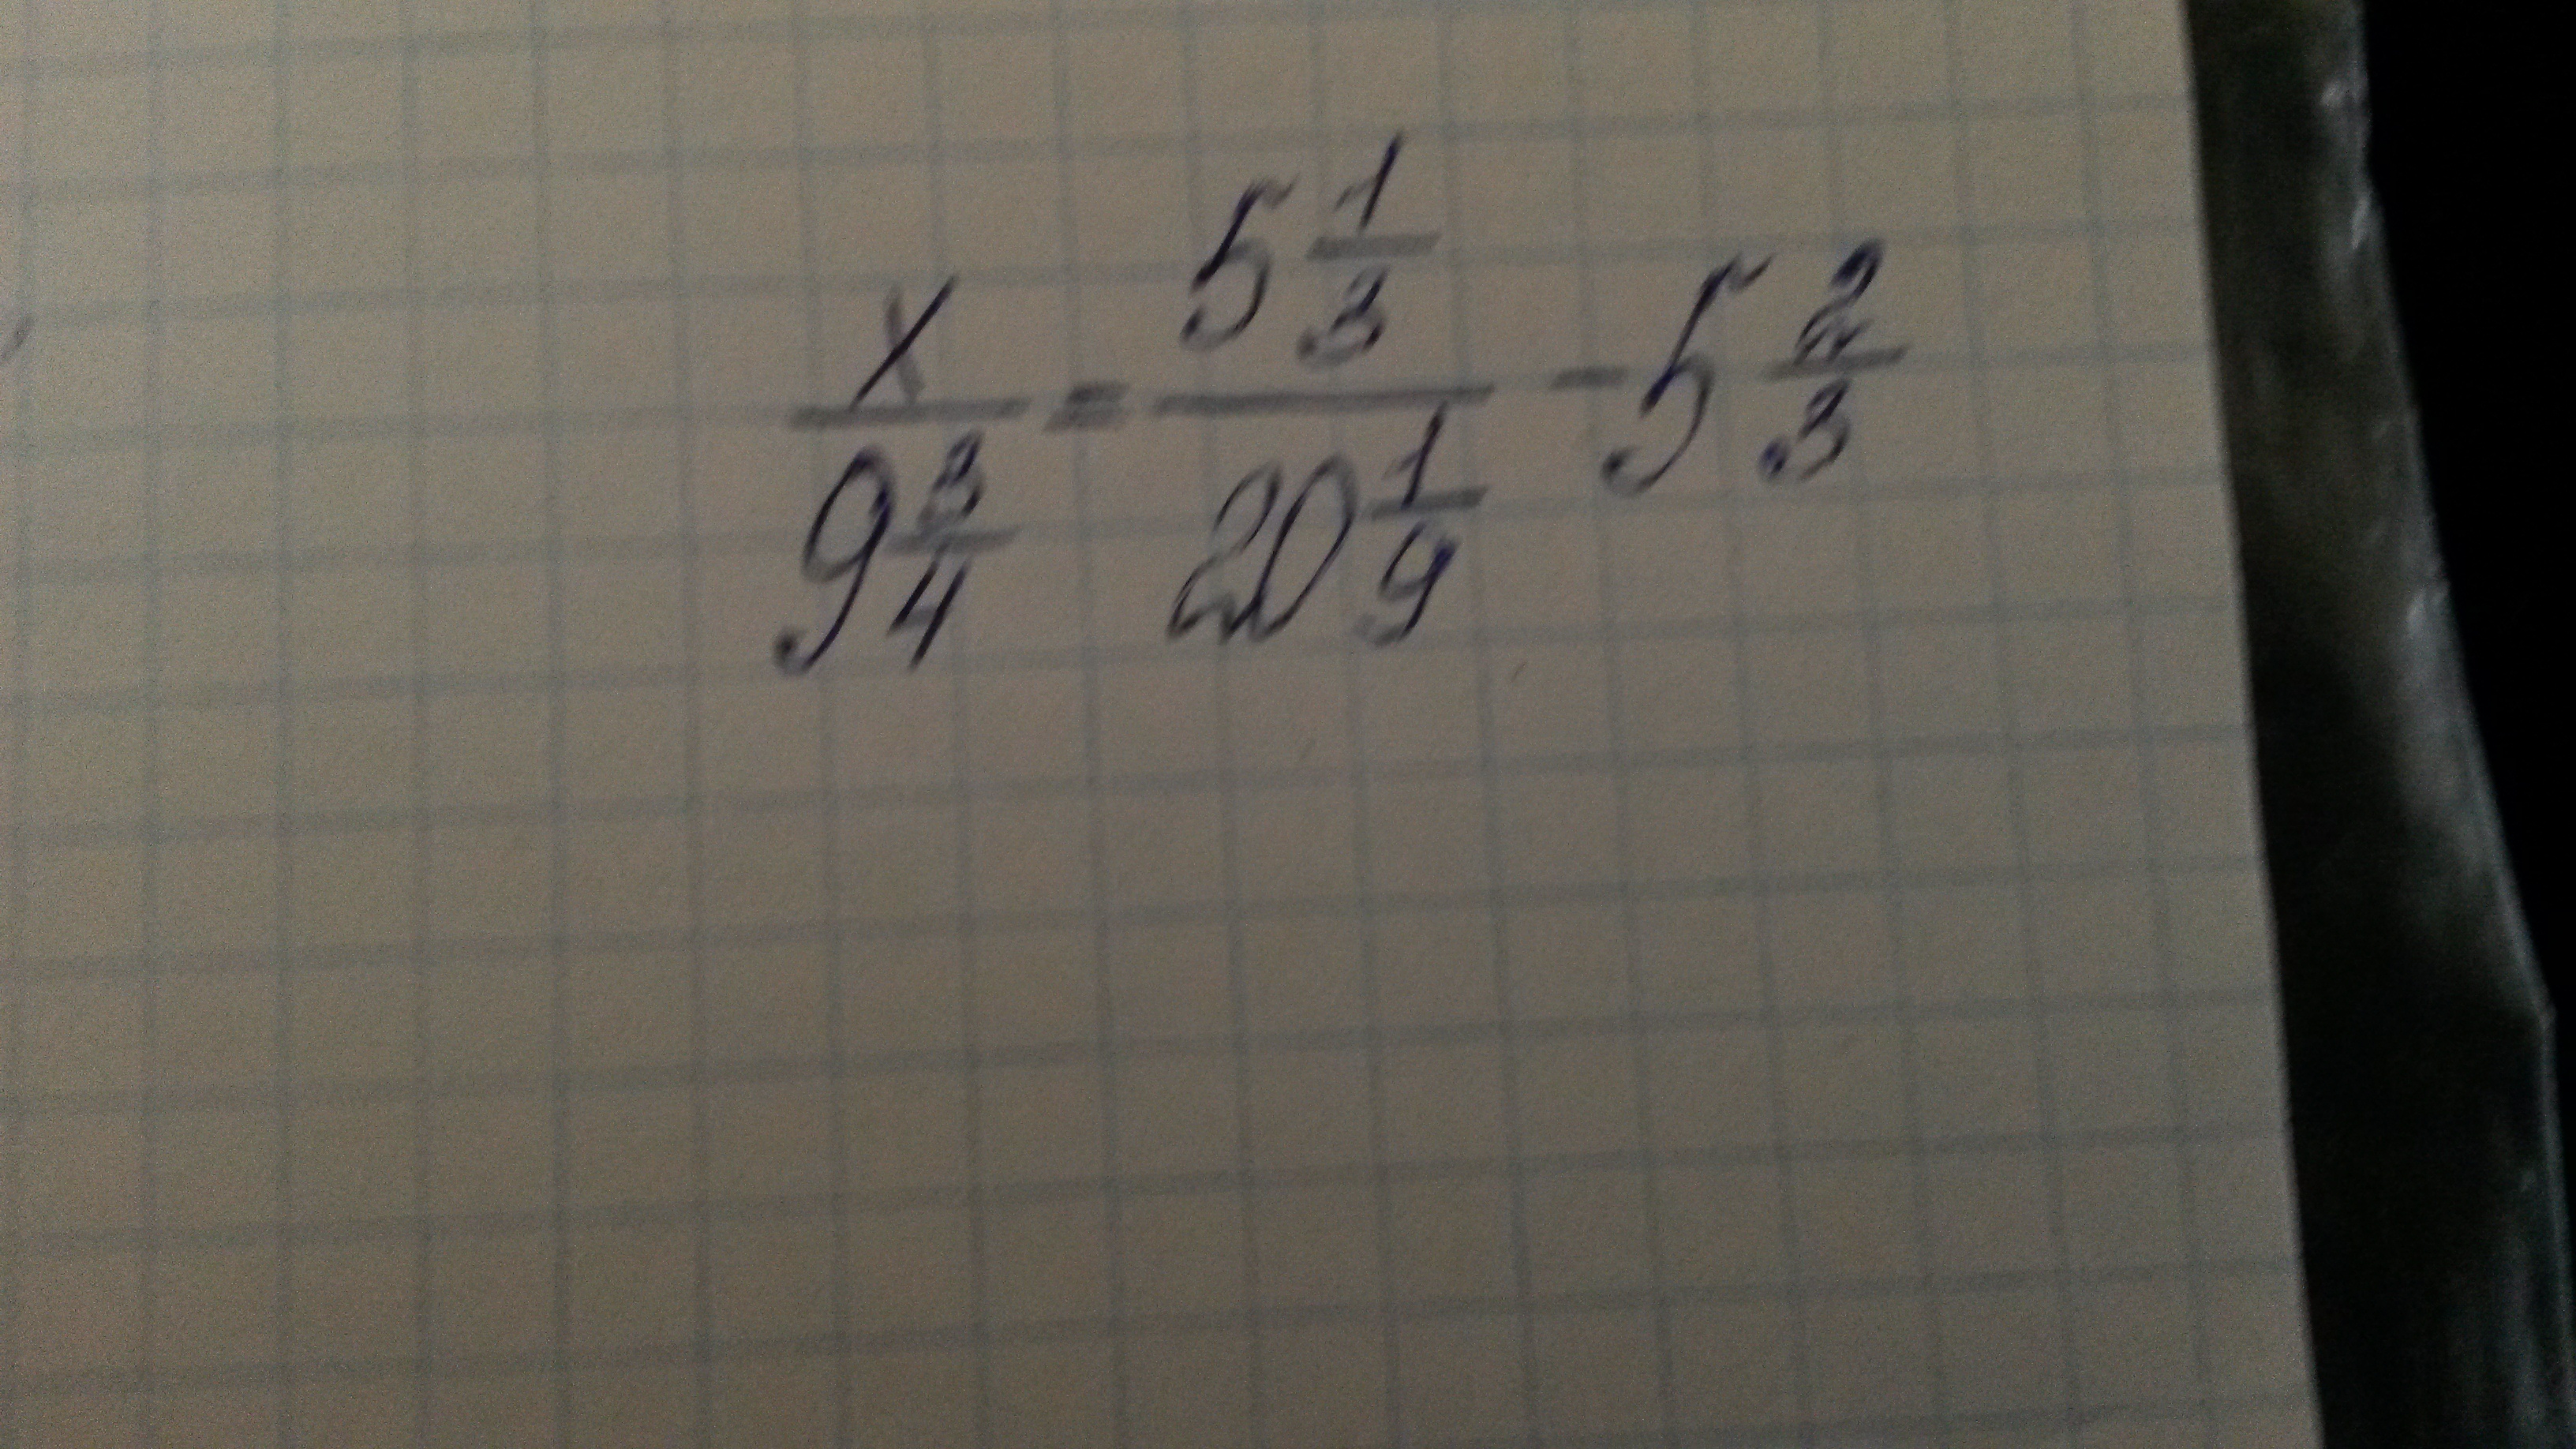 x/(9 3/4) = (5 1/3)/(20 1/9) - 5 2/3